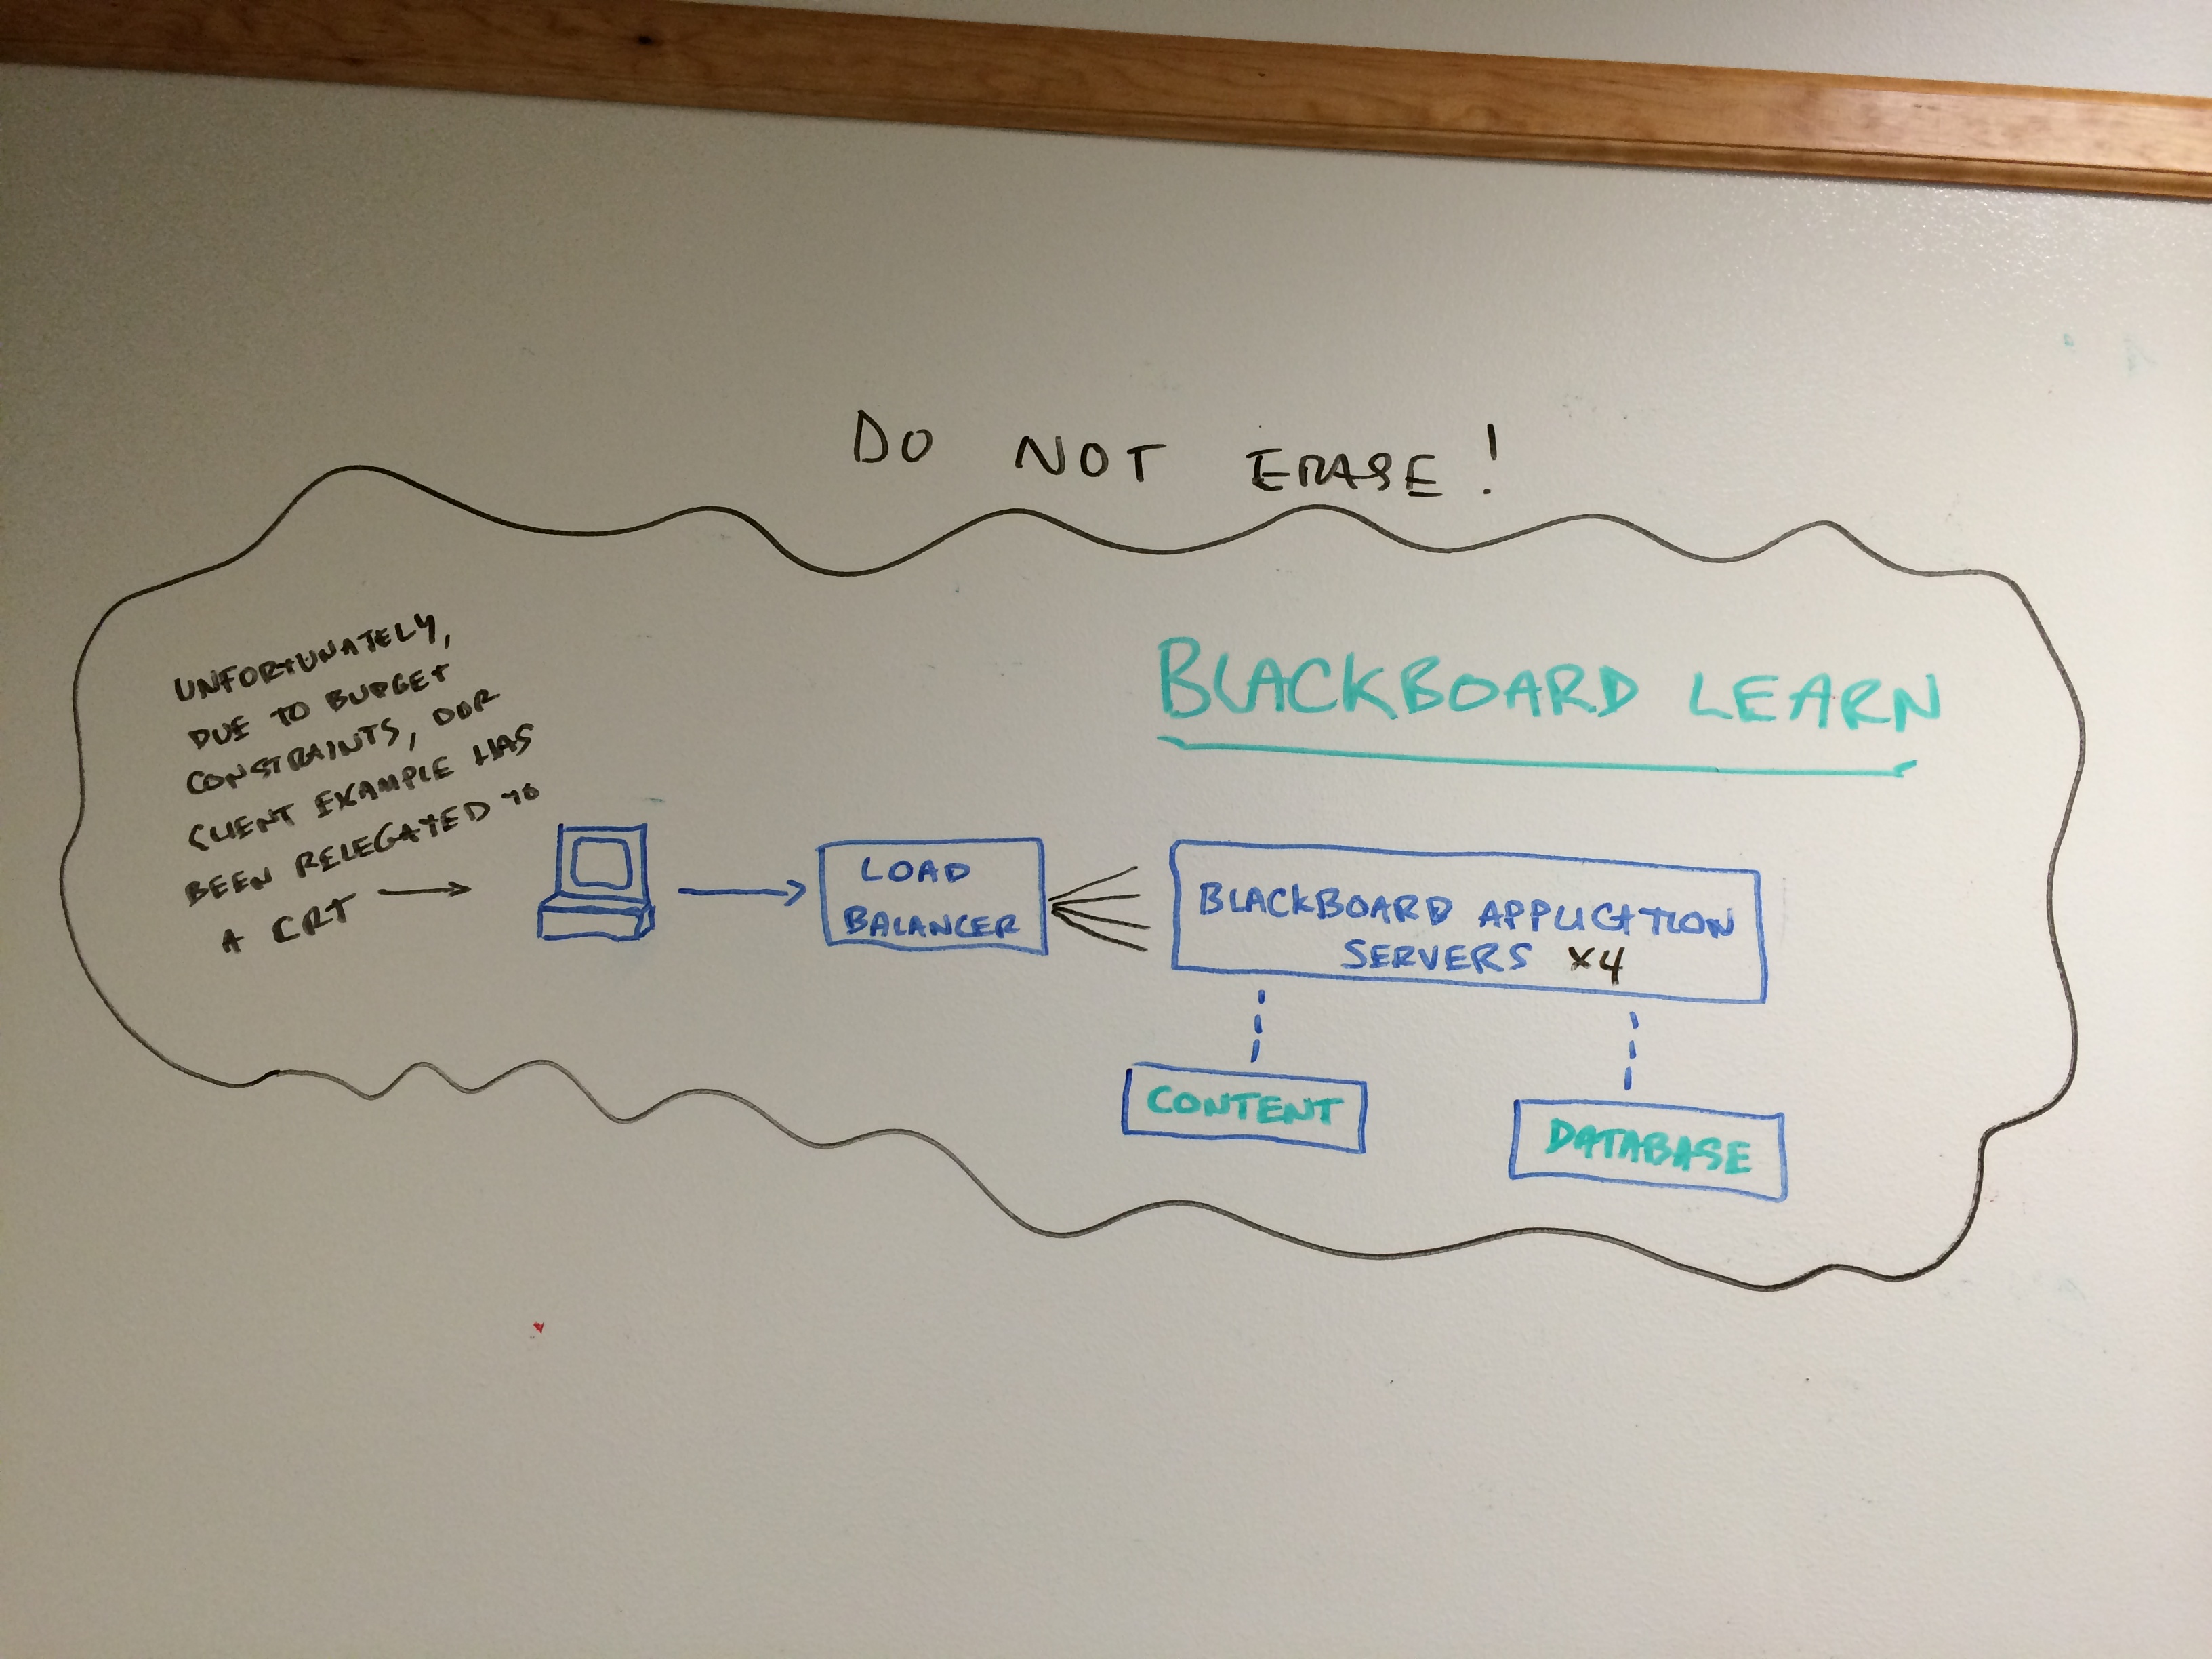 DO NOT ERASE!
UNFORTUNATELY,
DUE TO BUDGET
CONSTRAINTS, OUR
CLIENT EXAMPLE HAS
BEEN RELEGATED TO
A CRT
BLACKBOARD LEARN
LOAD
BALANCER
BLACKBOARD APPLICATION
SERVERS x4
CONTENT
DATABASE